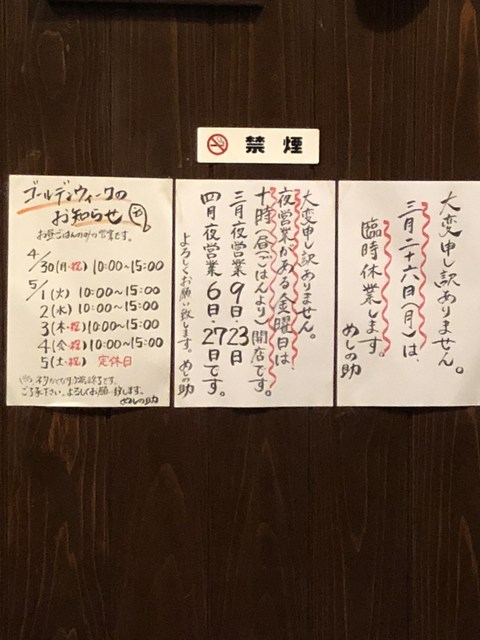 禁煙
大変申し訳ありません。
三月二十六日(月)は、
臨時休業します。
めしの助
大変申し訳ありません。
夜営業がある金曜日は、
十時(昼ごはんより)開店です。
三月夜営業 9日・23日
四月夜営業 6日・27日です。
よろしくお願い致します。めしの助
ゴールデンウィークの
お知らせ
お昼ごはんのみの営業です。
4/30(月・祝) 10:00~15:00
5/1(火) 10:00~15:00
2(水) 10:00~15:00
3(木・祝) 10:00~15:00
4(金・祝) 10:00~15:00
5(土・祝) 定休日
ご了承下さい。よろしくお願い致します。
めしの助